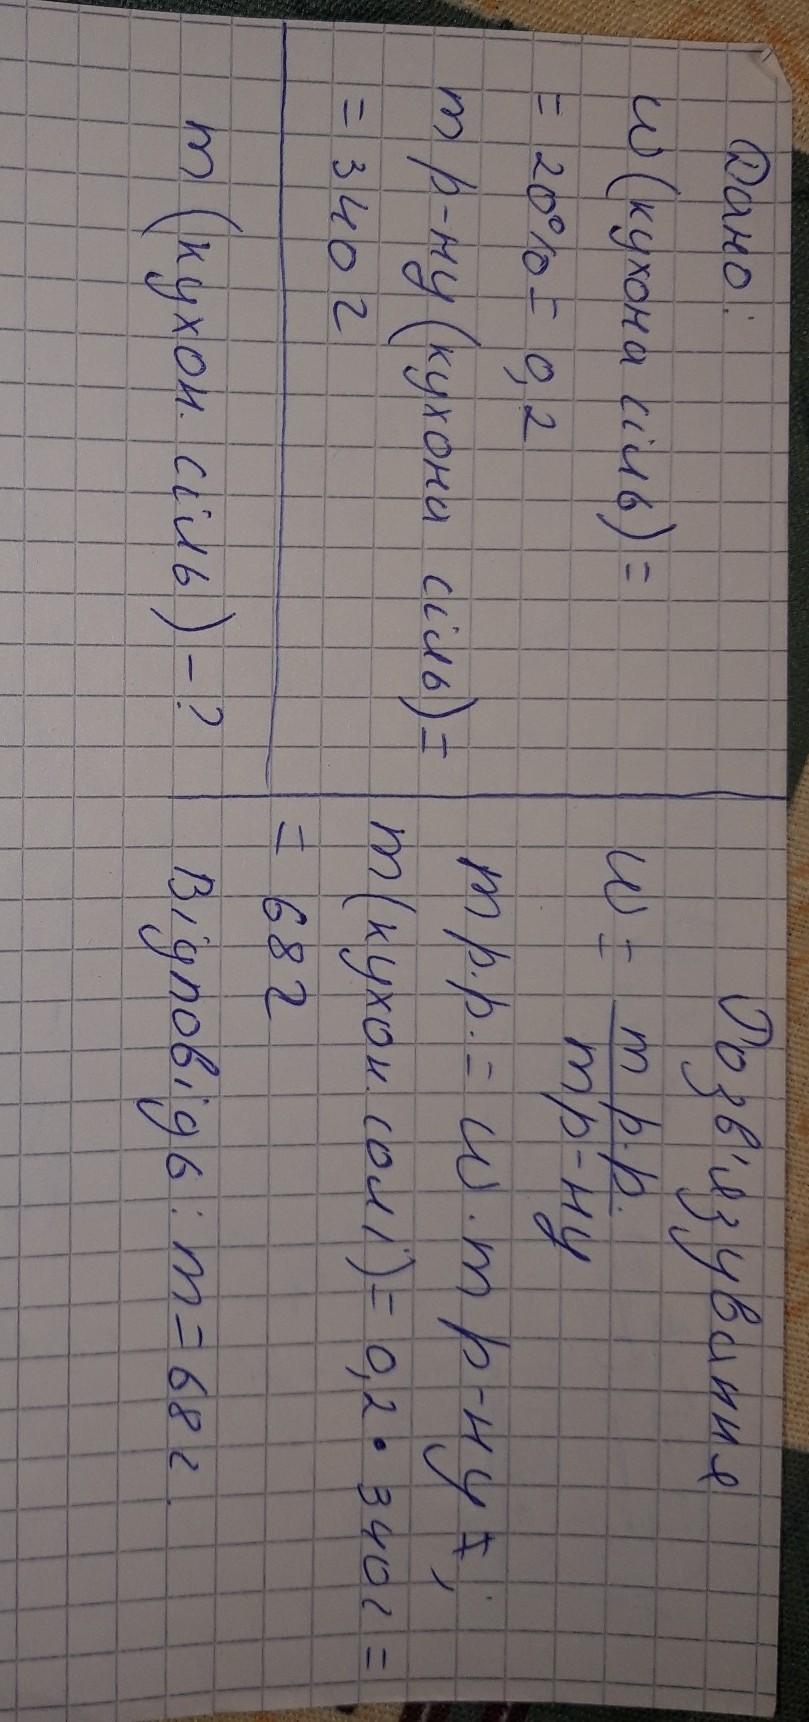 Дано:
w (кухона сіль) =
= 20% = 0,2
m р-ну (кухона сіль) =
= 340 г
m (кухон. сіль) - ?
Розв'язування
w = m р.р.
m р-ну
m р.р. = w . m р-ну ;
m (кухон. солі) = 0,2 • 340 г =
= 68 г
Відповідь: m = 68 г.